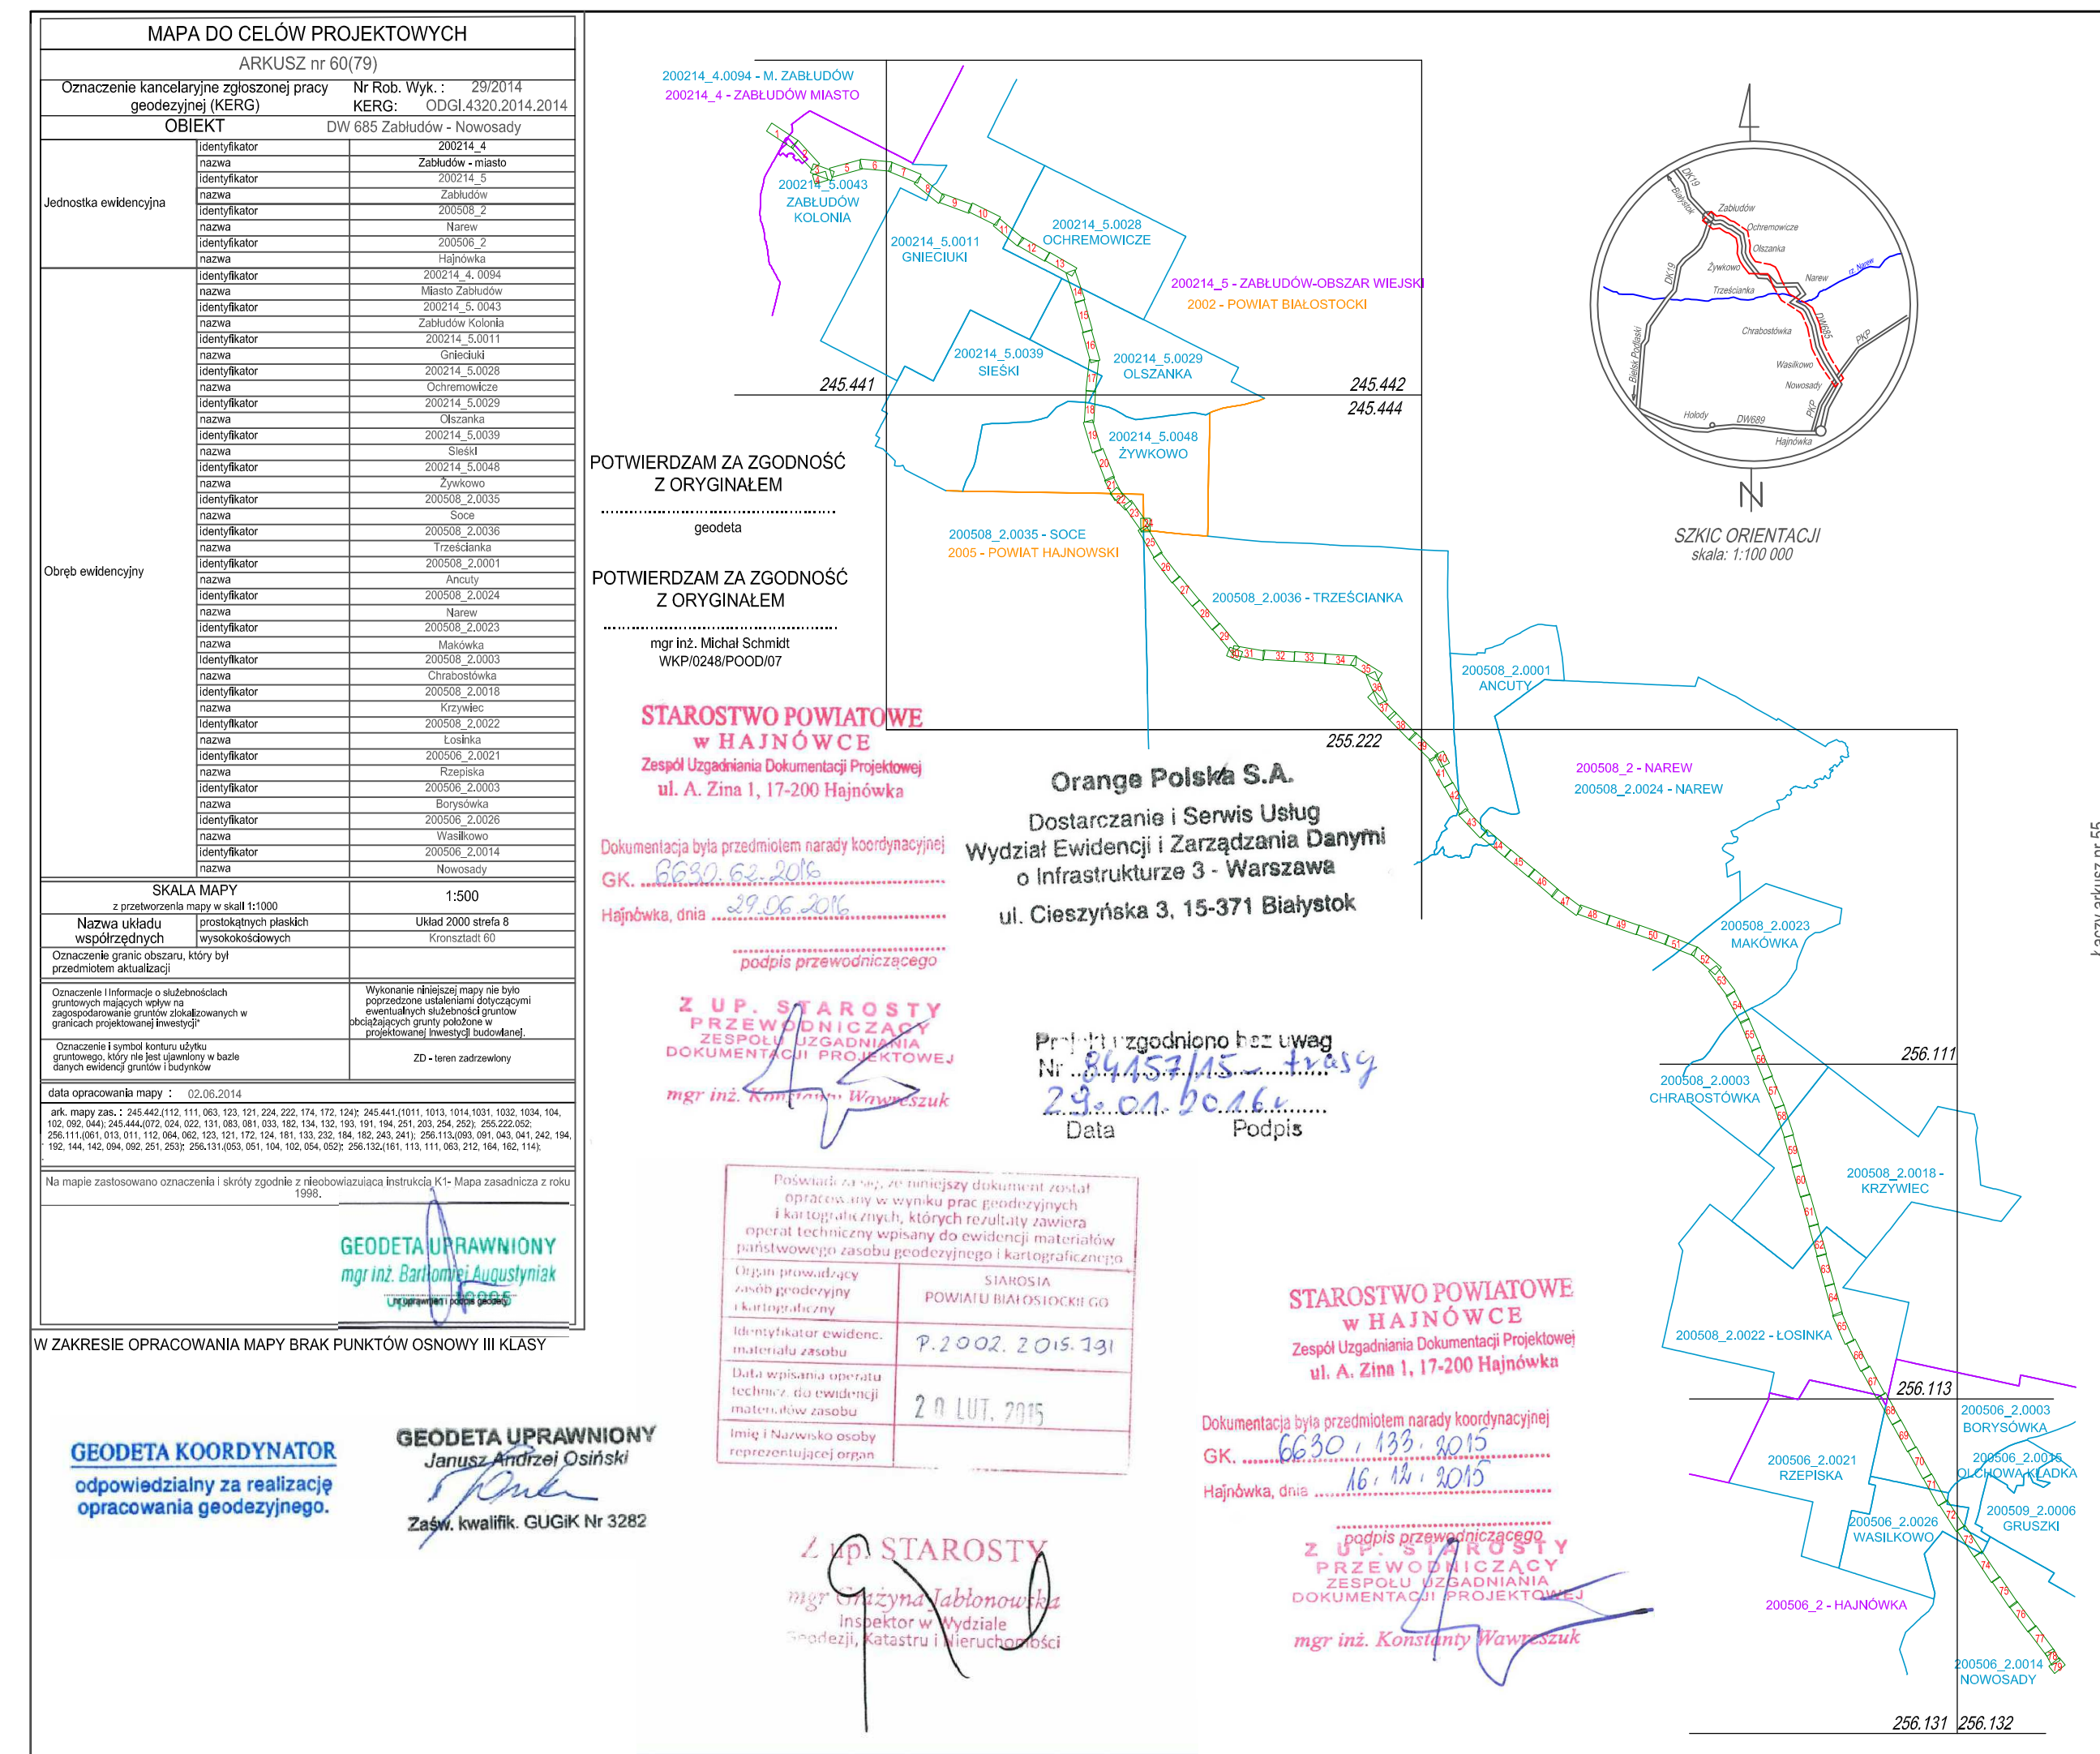 MAPA DO CELÓW PROJEKTOWYCH
ARKUSZ nr 60(79)
Oznaczenie kancelaryjne zgłoszonej pracy geodezyjnej (KERG)
Nr Rob. Wyk. : 29/2014
KERG: ODGI.4320.2014.2014
OBIEKT DW 685 Zabłudów - Nowosady
Jednostka ewidencyjna
identyfikator 200214_4
nazwa Zabłudów - miasto
identyfikator 200214_5
nazwa Zabłudów
identyfikator 200508_2
nazwa Narew
identyfikator 200506_2
nazwa Hajnówka
Obręb ewidencyjny
identyfikator 200214_4. 0094
nazwa Miasto Zabłudów
identyfikator 200214_5. 0043
nazwa Zabłudów Kolonia
identyfikator 200214_5.0011
nazwa Gnieciuki
identyfikator 200214_5.0028
nazwa Ochremowicze
identyfikator 200214_5.0029
nazwa Olszanka
identyfikator 200214_5.0039
nazwa Sieśki
identyfikator 200214_5.0048
nazwa Żywkowo
identyfikator 200508_2.0035
nazwa Soce
identyfikator 200508_2.0036
nazwa Trześcianka
identyfikator 200508_2.0001
nazwa Ancuty
identyfikator 200508_2.0024
nazwa Narew
identyfikator 200508_2.0023
nazwa Makówka
identyfikator 200508_2.0003
nazwa Chrabostówka
identyfikator 200508_2.0018
nazwa Krzywiec
identyfikator 200508_2.0022
nazwa Łosinka
identyfikator 200506_2.0021
nazwa Rzepiska
identyfikator 200506_2.0003
nazwa Borysówka
identyfikator 200506_2.0026
nazwa Wasilkowo
identyfikator 200506_2.0014
nazwa Nowosady
SKALA MAPY
z przetworzenia mapy w skali 1:1000
1:500
Nazwa układu współrzędnych
prostokątnych płaskich Układ 2000 strefa 8
wysokokościowych Kronsztadt 60
Oznaczenie granic obszaru, który był
przedmiotem aktualizacji
Oznaczenie i Informacje o służebnościach
gruntowych mających wpływ na
zagospodarowanie gruntów zlokalizowanych w
granicach projektowanej inwestycji*
Wykonanie niniejszej mapy nie było
poprzedzone ustaleniami dotyczącymi
ewentualnych służebności gruntów
obciążających grunty położone w
projektowanej Inwestycji budowlanej.
Oznaczenie i symbol konturu użytku
gruntowego, który nie jest ujawniony w bazie
danych ewidencji gruntów i budynków
ZD - teren zadrzewiony
data opracowania mapy : 02.06.2014
ark. mapy zas. : 245.442.(112, 111, 063, 123, 121, 224, 222, 174, 172, 124); 245.441.(1011, 1013, 1014,1031, 1032, 1034, 104,
102, 092, 044); 245.444.(072, 024, 022, 131, 083, 081, 033, 182, 134, 132, 193, 191, 194, 251, 203, 254, 252); 255.222.052;
256.111.(061, 013, 011, 112, 064, 062, 123, 121, 172, 124, 181, 133, 232, 184, 182, 243, 241); 256.113.(093, 091, 043, 041, 242, 194,
192, 144, 142, 094, 092, 251, 253); 256.131.(053, 051, 104, 102, 054, 052); 256.132.(161, 113, 111, 063, 212, 164, 162, 114);
Na mapie zastosowano oznaczenia i skróty zgodnie z nieobowiazująca instrukcja K1- Mapa zasadnicza z roku
1998.
GEODETA UPRAWNIONY
mgr inż. Bartłomiej Augustyniak
nr uprawnień i podpis geodety
W ZAKRESIE OPRACOWANIA MAPY BRAK PUNKTÓW OSNOWY III KLASY
GEODETA KOORDYNATOR
odpowiedzialny za realizację
opracowania geodezyjnego.
GEODETA UPRAWNIONY
Janusz Andrzej Osiński
Zaśw. kwalifik. GUGiK Nr 3282
POTWIERDZAM ZA ZGODNOŚĆ
Z ORYGINAŁEM
geodeta
POTWIERDZAM ZA ZGODNOŚĆ
Z ORYGINAŁEM
mgr inż. Michał Schmidt
WKP/0248/POOD/07
STAROSTWO POWIATOWE
w HAJNÓWCE
Zespół Uzgadniania Dokumentacji Projektowej
ul. A. Zina 1, 17-200 Hajnówka
Dokumentacja była przedmiotem narady koordynacyjnej
GK. 6630.62.2016
Hajnówka, dnia 29.06.2016
podpis przewodniczącego
Z UP. STAROSTY
PRZEWODNICZĄCY
ZESPOŁU UZGADNIANIA
DOKUMENTACJI PROJEKTOWEJ
mgr inż. Konstanty Wawreszuk
Orange Polska S.A.
Dostarczanie i Serwis Usług
Wydział Ewidencji i Zarządzania Danymi
o Infrastrukturze 3 - Warszawa
ul. Cieszyńska 3, 15-371 Białystok
Projekt uzgodniono bez uwag
Nr 84157/15 - trasy
29.01.2016r
Data Podpis
Poświadcza się, że niniejszy dokument został
opracowany w wyniku prac geodezyjnych
i kartograficznych, których rezultaty zawiera
operat techniczny wpisany do ewidencji materiałów
państwowego zasobu geodezyjnego i kartograficznego
Organ prowadzący
zasób geodezyjny
i kartograficzny
STAROSTA
POWIATU BIAŁOSTOCKIEGO
Identyfikator ewidenc.
materiału zasobu
P.2002.2015.791
Data wpisania operatu
technicz. do ewidencji
materiałów zasobu
20 LUT. 2015
Imię i Nazwisko osoby
reprezentującej organ
Z up. STAROSTY
mgr Grażyna Jabłonowska
Inspektor w Wydziale
Geodezji, Katastru i Nieruchomości
STAROSTWO POWIATOWE
w HAJNÓWCE
Zespół Uzgadniania Dokumentacji Projektowej
ul. A. Zina 1, 17-200 Hajnówka
Dokumentacja była przedmiotem narady koordynacyjnej
GK. 6630.133.2015
Hajnówka, dnia 16.12.2015
podpis przewodniczącego
Z UP. STAROSTY
PRZEWODNICZĄCY
ZESPOŁU UZGADNIANIA
DOKUMENTACJI PROJEKTOWEJ
mgr inż. Konstanty Wawreszuk
200214_4.0094 - M. ZABŁUDÓW
200214_4 - ZABŁUDÓW MIASTO
200214_5.0043
ZABŁUDÓW
KOLONIA
200214_5.0011
GNIECIUKI
200214_5.0028
OCHREMOWICZE
200214_5 - ZABŁUDÓW-OBSZAR WIEJSKI
2002 - POWIAT BIAŁOSTOCKI
200214_5.0039
SIEŚKI
200214_5.0029
OLSZANKA
245.441
245.442
245.444
200214_5.0048
ŻYWKOWO
200508_2.0035 - SOCE
2005 - POWIAT HAJNOWSKI
200508_2.0036 - TRZEŚCIANKA
200508_2.0001
ANCUTY
255.222
200508_2 - NAREW
200508_2.0024 - NAREW
200508_2.0023
MAKÓWKA
256.111
200508_2.0003
CHRABOSTÓWKA
200508_2.0018 -
KRZYWIEC
200508_2.0022 - ŁOSINKA
256.113
200506_2.0003
BORYSÓWKA
200506_2.0021
RZEPISKA
200506_2.0015
OLCHOWA KŁADKA
200509_2.0006
GRUSZKI
200506_2.0026
WASILKOWO
200506_2 - HAJNÓWKA
200506_2.0014
NOWOSADY
256.131
256.132
1 2 3 4 5 6 7 8 9 10 11 12 13 14 15 16 17 18 19 20 21 22 23 24 25 26 27 28 29 30 31 32 33 34 35 36 37 38 39 40 41 42 43 44 45 46 47 48 49 50 51 52 53 54 55 56 57 58 59 60 61 62 63 64 65 66 67 68 69 70 71 72 73 74 75 76 77 78 79
DK19
Białystok
Zabłudów
Ochremowicze
Olszanka
Żywkowo
Narew
rz. Narew
Trześcianka
DK19
Chrabostówka
DW685
PKP
Bielsk Podlaski
Wasilkowo
Nowosady
Hołody
DW689
PKP
Hajnówka
N
SZKIC ORIENTACJI
skala: 1:100 000
Łączy arkusz nr 55